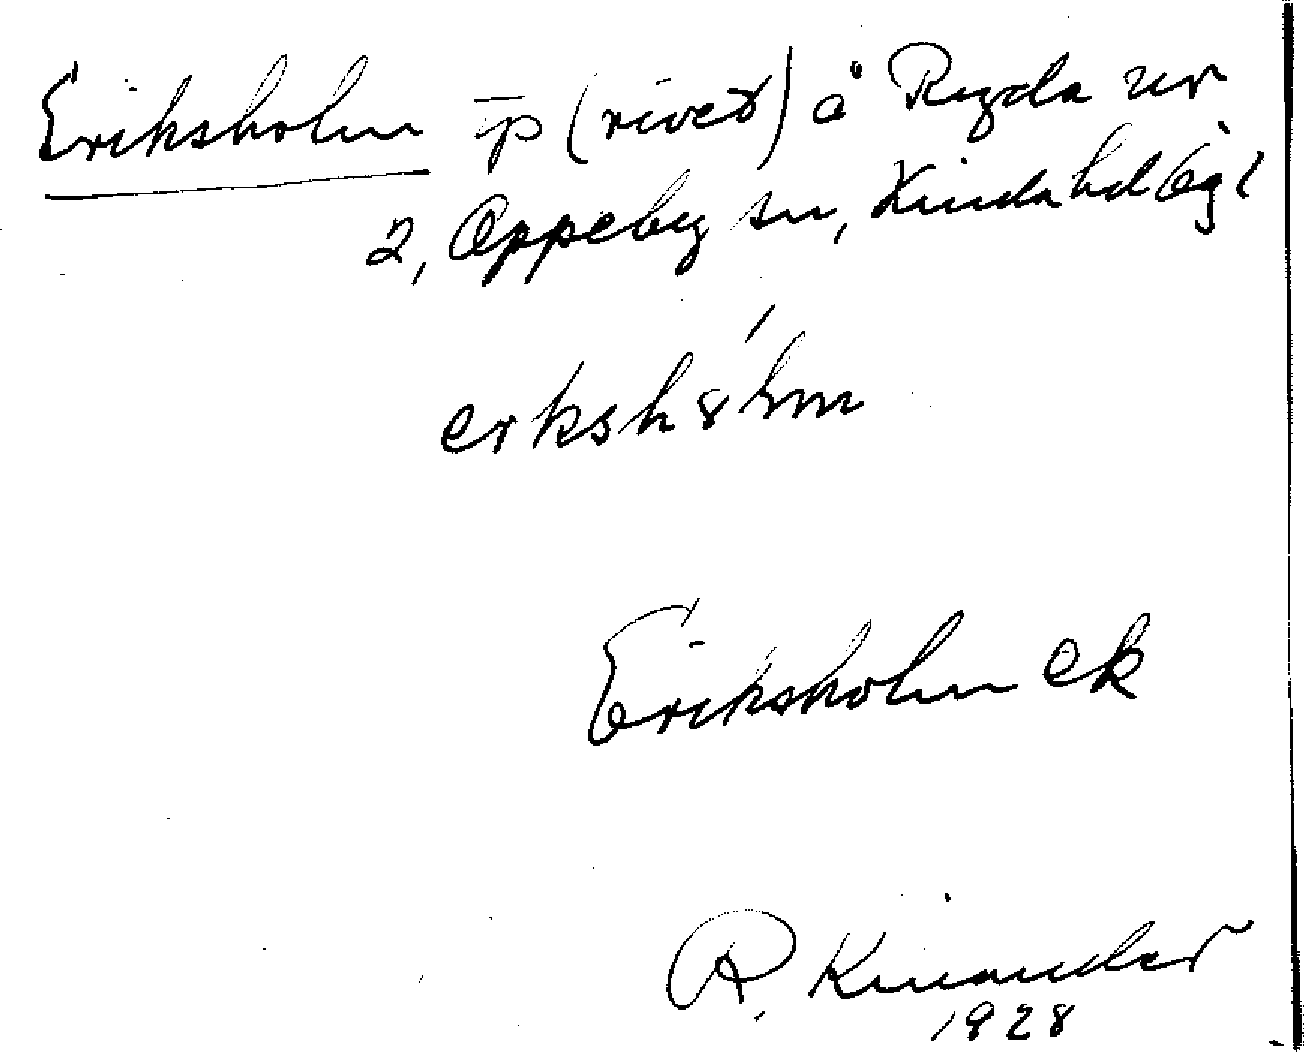 Eriksholm tp (rivet) å Rygda nr
2, Oppeby sn, Kinda hd Ögl
erksholm
Eriksholm ek
R. Kinander
1928